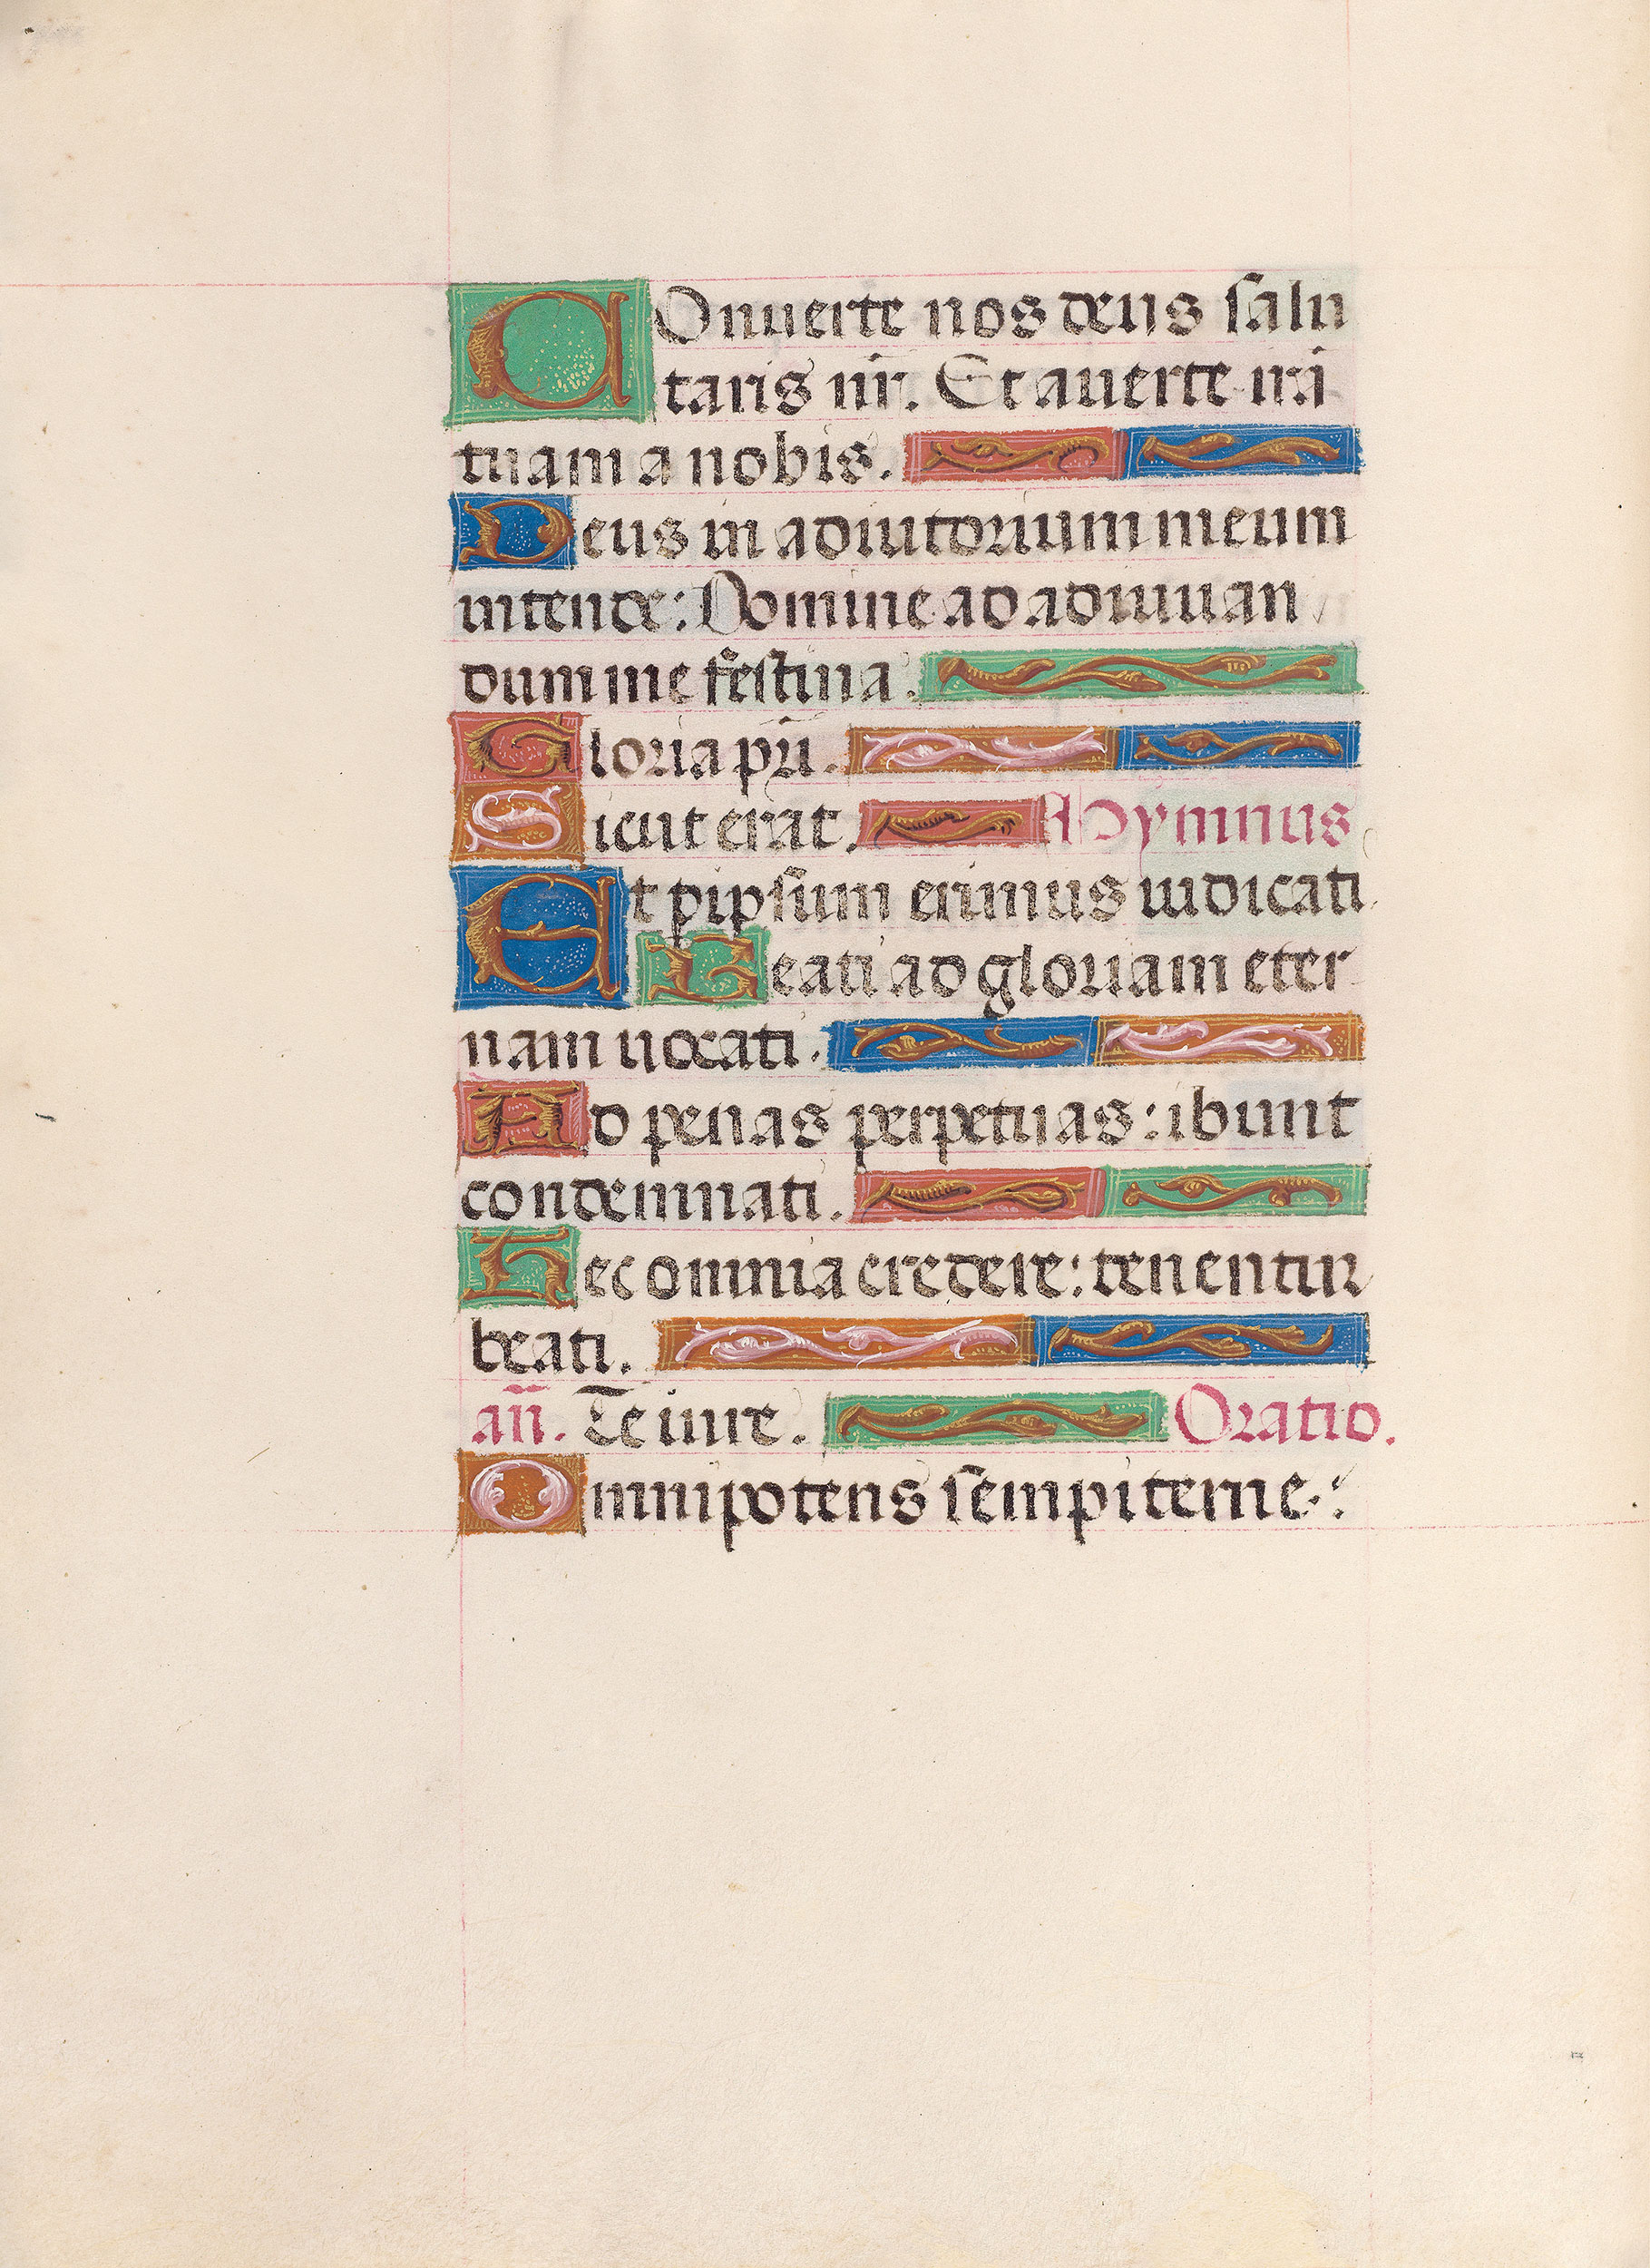 COnuerte nos deus salu
taris nr̃. Et auerte irã
tuam a nobis.
Deus in adiutorium meum
intende: Domine ad adiuuan
dum me festina.
Gloria pr̃i.
Sicut erat. Hymnus
Et p ip̄sum erimus iudicati
Beati ad gloriam eter
nam uocati.
Ad penas perpetuas: ibunt
condemnati.
Hec omnia credere: tenentur
beati.
añ. Te iure. Oratio.
Omnipotens sempiterne: